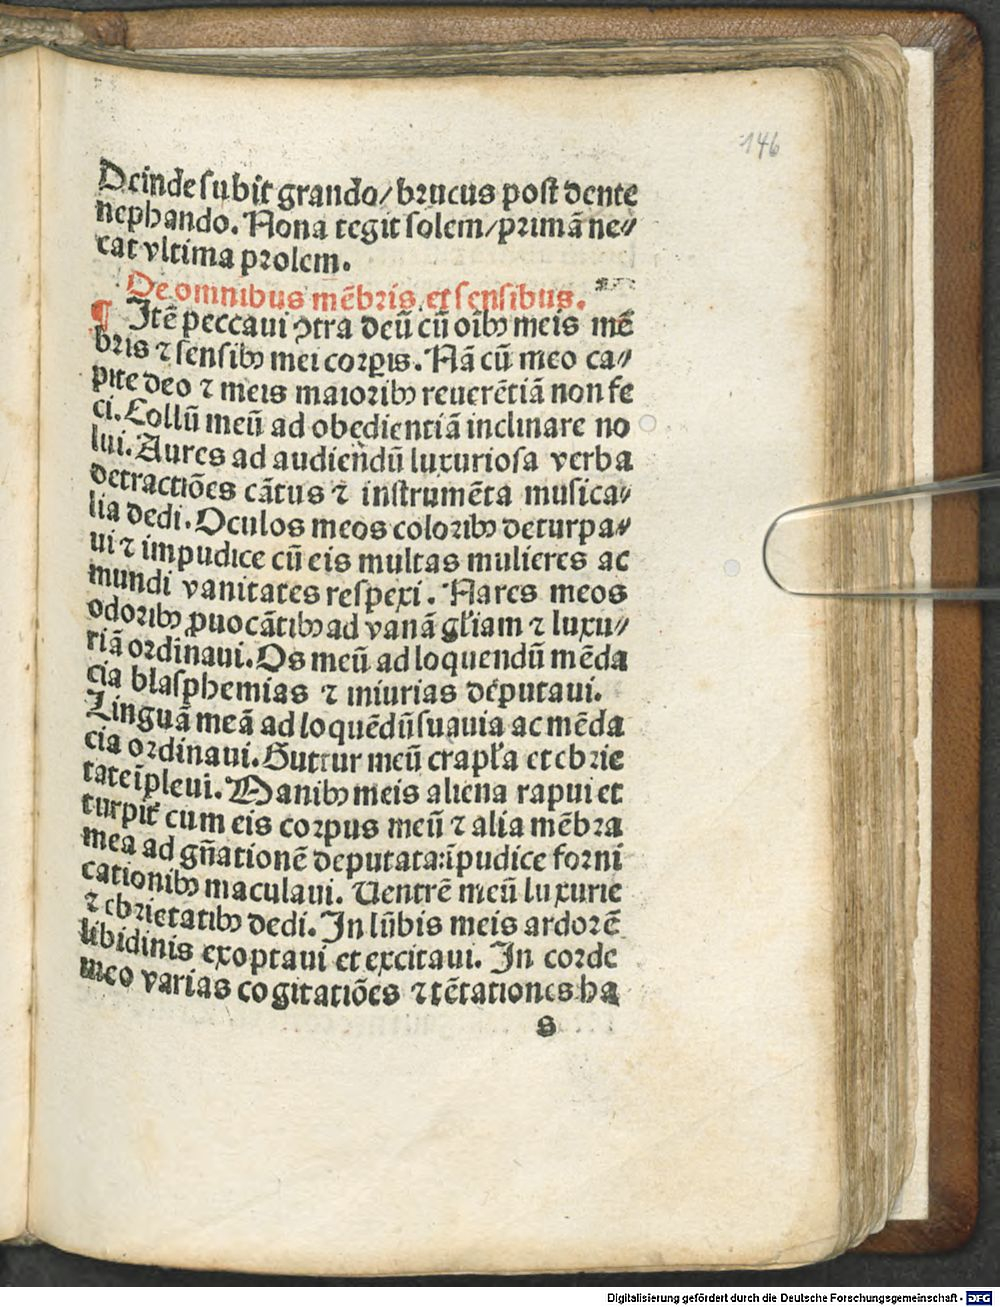 146
Deinde subit grando/ brucus post dente
nephando. Nona tegit solem/ primā ne⸗
cat vltima prolem.
De omnibus mēbris et sensibus.
¶ Itē peccaui ↄtra deū cū oībꝰ meis mē
bris ⁊ sensibꝰ mei corꝑis. Nā cū meo ca⸗
pite deo ⁊ meis maioribꝰ reuerētiā non fe
ci. Collū meū ad obedientiā inclinare no
lui. Aures ad audiendū luxuriosa verba
detractiōes cātus ⁊ instrumēta musica⸗
lia dedi. Oculos meos coloribꝰ deturpa⸗
ui ⁊ impudice cū eis multas mulieres ac
mundi vanitates respexi. Nares meos
odoribꝰ ꝓuocātibꝰ ad vanā gl'iam ⁊ luxu⸗
riā ordinaui. Os meū ad loquendū mēda
cia blasphemias ⁊ iniurias deputaui.
Linguā meā ad loquēdū suauia ac mēda
cia ordinaui. Guttur meū crapl'a et ebrie
tate īpleui. Manibꝰ meis aliena rapui et
turpit' cum eis corpus meū ⁊ alia mēbra
mea ad gn̄ationē deputata: īpudice forni
cationibꝰ maculaui. Uentrē meū luxurie
⁊ ebrietatibꝰ dedi. In lūbis meis ardorē
libidinis exoptaui et excitaui. In corde
meo varias cogitatiōes ⁊ tētationes ha
s
Digitalisierung gefördert durch die Deutsche Forschungsgemeinschaft - DFG